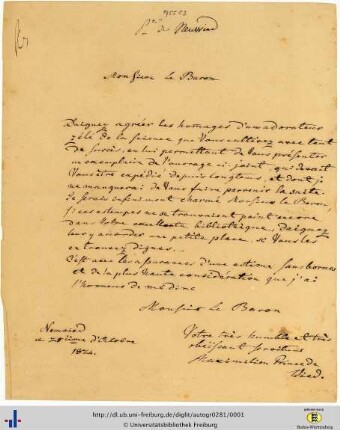 95553
Pce de Neuwied
Monsieur le Baron
Daignez agréer les homages d'un adorateur
zélé de la science que Vous cultivez avec tant
de succès, en lui permettant de Vous présenter
un exemplaire de l'ouvrage ci-joint, qui devait
Vous être expédié depuis longtems, et dont je
ne manquerai de Vous faire parvenir la suite.
Je serais infiniment charmé Monsieur le Baron,
si ces estampes ne se trouvaient point encore
dans Votre excellente bibliothèque; Daignez
leur y accorder une petite place, si Vous les
en trouvez dignes.
C'est avec les assurances d'une estime sans bornes
et de la plus haute considération que j'ai
l'honneur de me dire
Monsieur le Baron
Neuwied
ce d'Octobre
182
Votre très humble et très
obéissant serviteur
Maximilian Prince de
Wied.
http://dl.ub.uni-freiburg.de/diglit/autogr0281/0001
© Universitätsbibliothek Freiburg
Baden-Württemberg